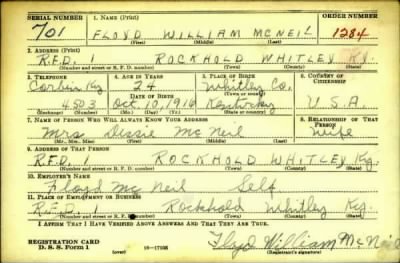 SERIAL NUMBER 1. NAME (Print) ORDER NUMBER
701 FLOYD WILLIAM MCNEIL 1284
(First) (Middle) (Last)
2. ADDRESS (Print)
R.F.D. 1 ROCKHOLD WHITLEY Ky.
(Number and street or R. F. D. number) (Town) (County) (State)
3. TELEPHONE 4. AGE IN YEARS 5. PLACE OF BIRTH 6. COUNTRY OF CITIZENSHIP
Corbin Ky 24 Whitley Co.
DATE OF BIRTH (Town or county)
4503 Oct. 10, 1916 Kentucky U.S.A.
7. NAME OF PERSON WHO WILL ALWAYS KNOW YOUR ADDRESS 8. RELATIONSHIP OF THAT PERSON
Mrs Dessie McNeil Wife
(Mr., Mrs., Miss) (First) (Middle) (Last)
9. ADDRESS OF THAT PERSON
R.F.D. 1 ROCKHOLD WHITLEY Ky.
(Number and street or R. F. D. number) (Town) (County) (State)
10. EMPLOYER'S NAME
Floyd McNeil Self
11. PLACE OF EMPLOYMENT OR BUSINESS
R.F.D. 1 Rockhold Whitley Ky.
(Number and street or R. F. D. number) (Town) (County) (State)
I AFFIRM THAT I HAVE VERIFIED ABOVE ANSWERS AND THAT THEY ARE TRUE.
REGISTRATION CARD
D. S. S. Form 1 (over) Floyd William McNeil
(Registrant's signature)